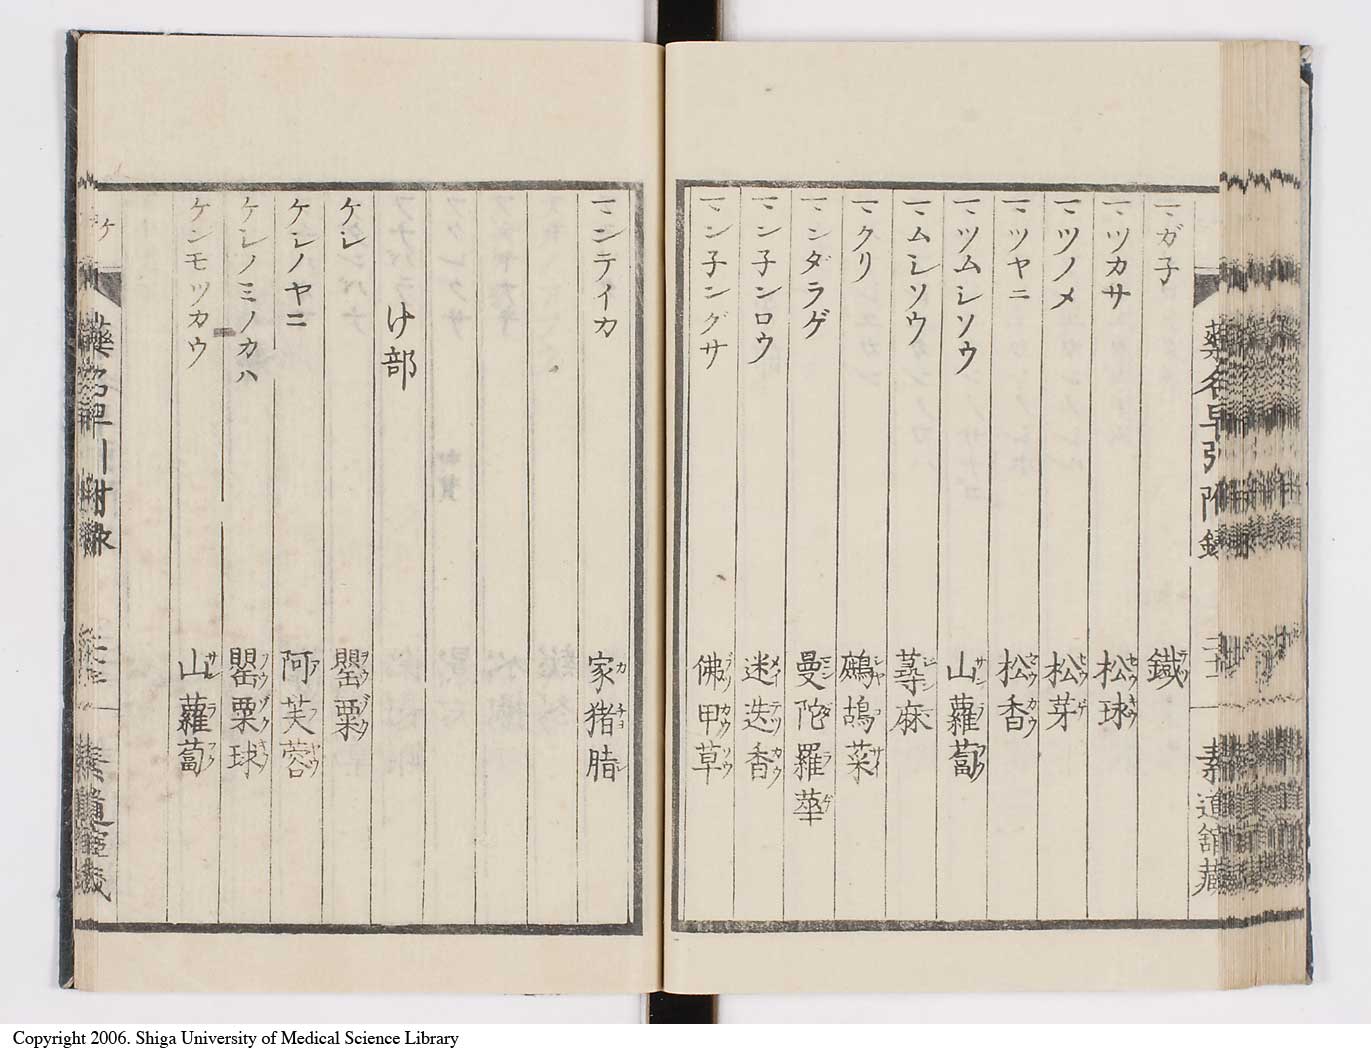 藥名早引附錄
二十二
素進舘藏
マガ子 鐵
マツカサ 松球
マツノメ 松芽
マツヤニ 松香
マツムシソウ 山蘿蔔
マムシソウ 蕁麻
マクリ 鷓鴣菜
マンダラゲ 曼陀羅華
マン子ンロウ 迷迭香
マン子ングサ 佛甲草
マンテイカ 家猪脂
け部
ケシ 罌粟
ケシノヤニ 阿芙蓉
ケシノミノカハ 罌粟球
ケンモツカウ 山蘿蔔
ケ
Copyright 2006. Shiga University of Medical Science Library